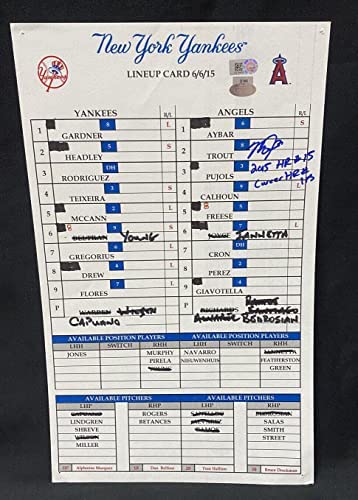 New York Yankees
LINEUP CARD 6/6/15
YANKEES R/L ANGELS R/L
1 8 L 1 6 S
GARDNER AYBAR
2 5 S 2 8
HEADLEY TROUT
2015 HR # 15
Career HR #
113
3 DH 3 3
RODRIGUEZ PUJOLS
4 3 S 4 9 S
TEIXEIRA CALHOUN
5 2 L 5 5
MCCANN FREESE
6 8 9 S 6 2
BELTRAN YOUNG JOYCE IANNETTA
7 6 L 7 DH
GREGORIUS CRON
8 4 L 8 4
DREW PEREZ
9 7 9
FLORES GIAVOTELLA
P WARREN WILSON P RICHARDS RAMOS
SANTIAGO
CAPUANO ALVAREZ BEDROSIAN
AVAILABLE POSITION PLAYERS AVAILABLE POSITION PLAYERS
LHH SWITCH RHH LHH SWITCH RHH
JONES MURPHY NAVARRO IANNETTA
PIRELA NIEUWENHUIS FEATHERSTON
YOUNG GREEN
AVAILABLE PITCHERS AVAILABLE PITCHERS
LHP RHP LHP RHP
CAPUANO ROGERS SANTIAGO BEDROSIAN
LINDGREN BETANCES SALAS
SHREVE RAMOS SMITH
WILSON STREET
MILLER
Alphonso Marquez Tom Hallion Bruce Dreckman